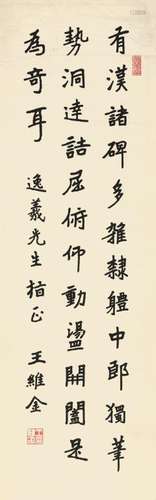 有漢諸碑多雜隸軆中郎獨筆
勢洞達詰屈俯仰動盪開闔是
為奇耳
逸羲先生指正
王維金